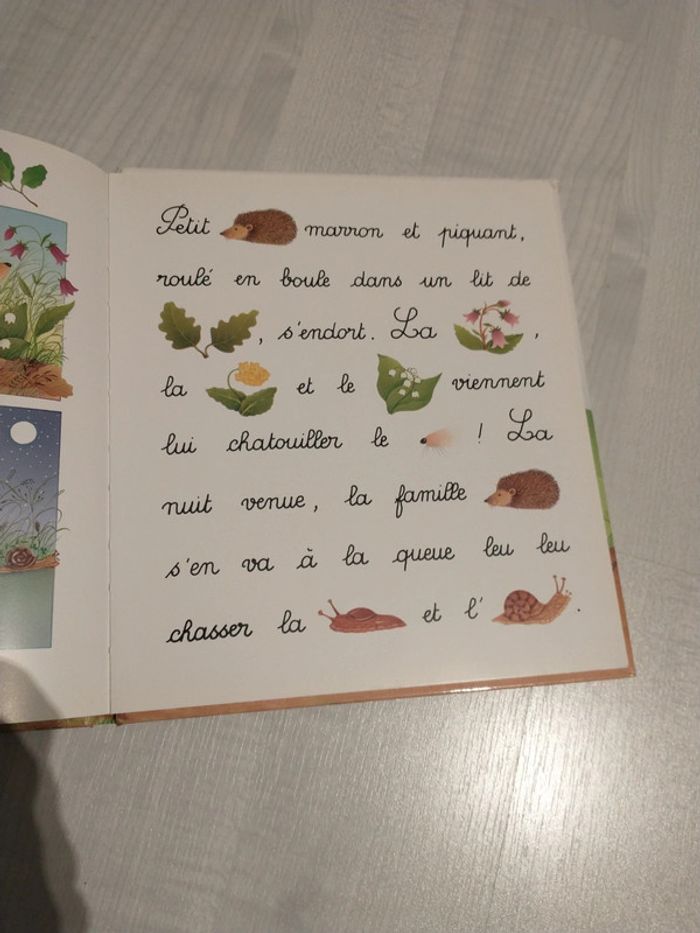 Petit marron et piquant,
roulé en boule dans un lit de
, s'endort. La ,
la et le viennent
lui chatouiller le ! La
nuit venue, la famille
s'en va à la queue leu leu
chasser la et l' .